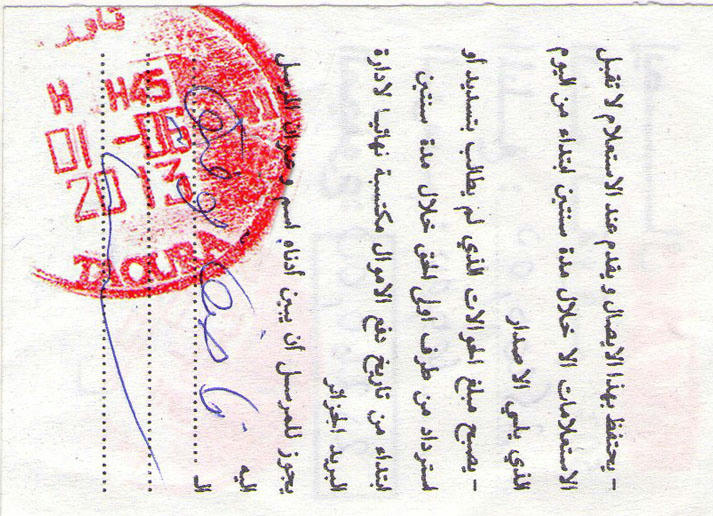 - يحتفظ بهذا الايصال و يقدم عند الاستعلام لا تقبل
الاستعلامات الا خلال مدة سنتين ابتداء من اليوم
الذي يلي الاصدار
- يصبح مبلغ الحوالات الذي لم يطالب بتسديد أو
استرداد من طرف اولى الحق خلال مدة سنتين
ابتداء من تاريخ دفع الاموال مكتسبة نهائيا لادارة
البريد الجزائر
يجوز للمرسل أن يبين أدناه اسم و عنوان المرسل
اليه
الـ
H H45
01 -06
2013
TAOURA